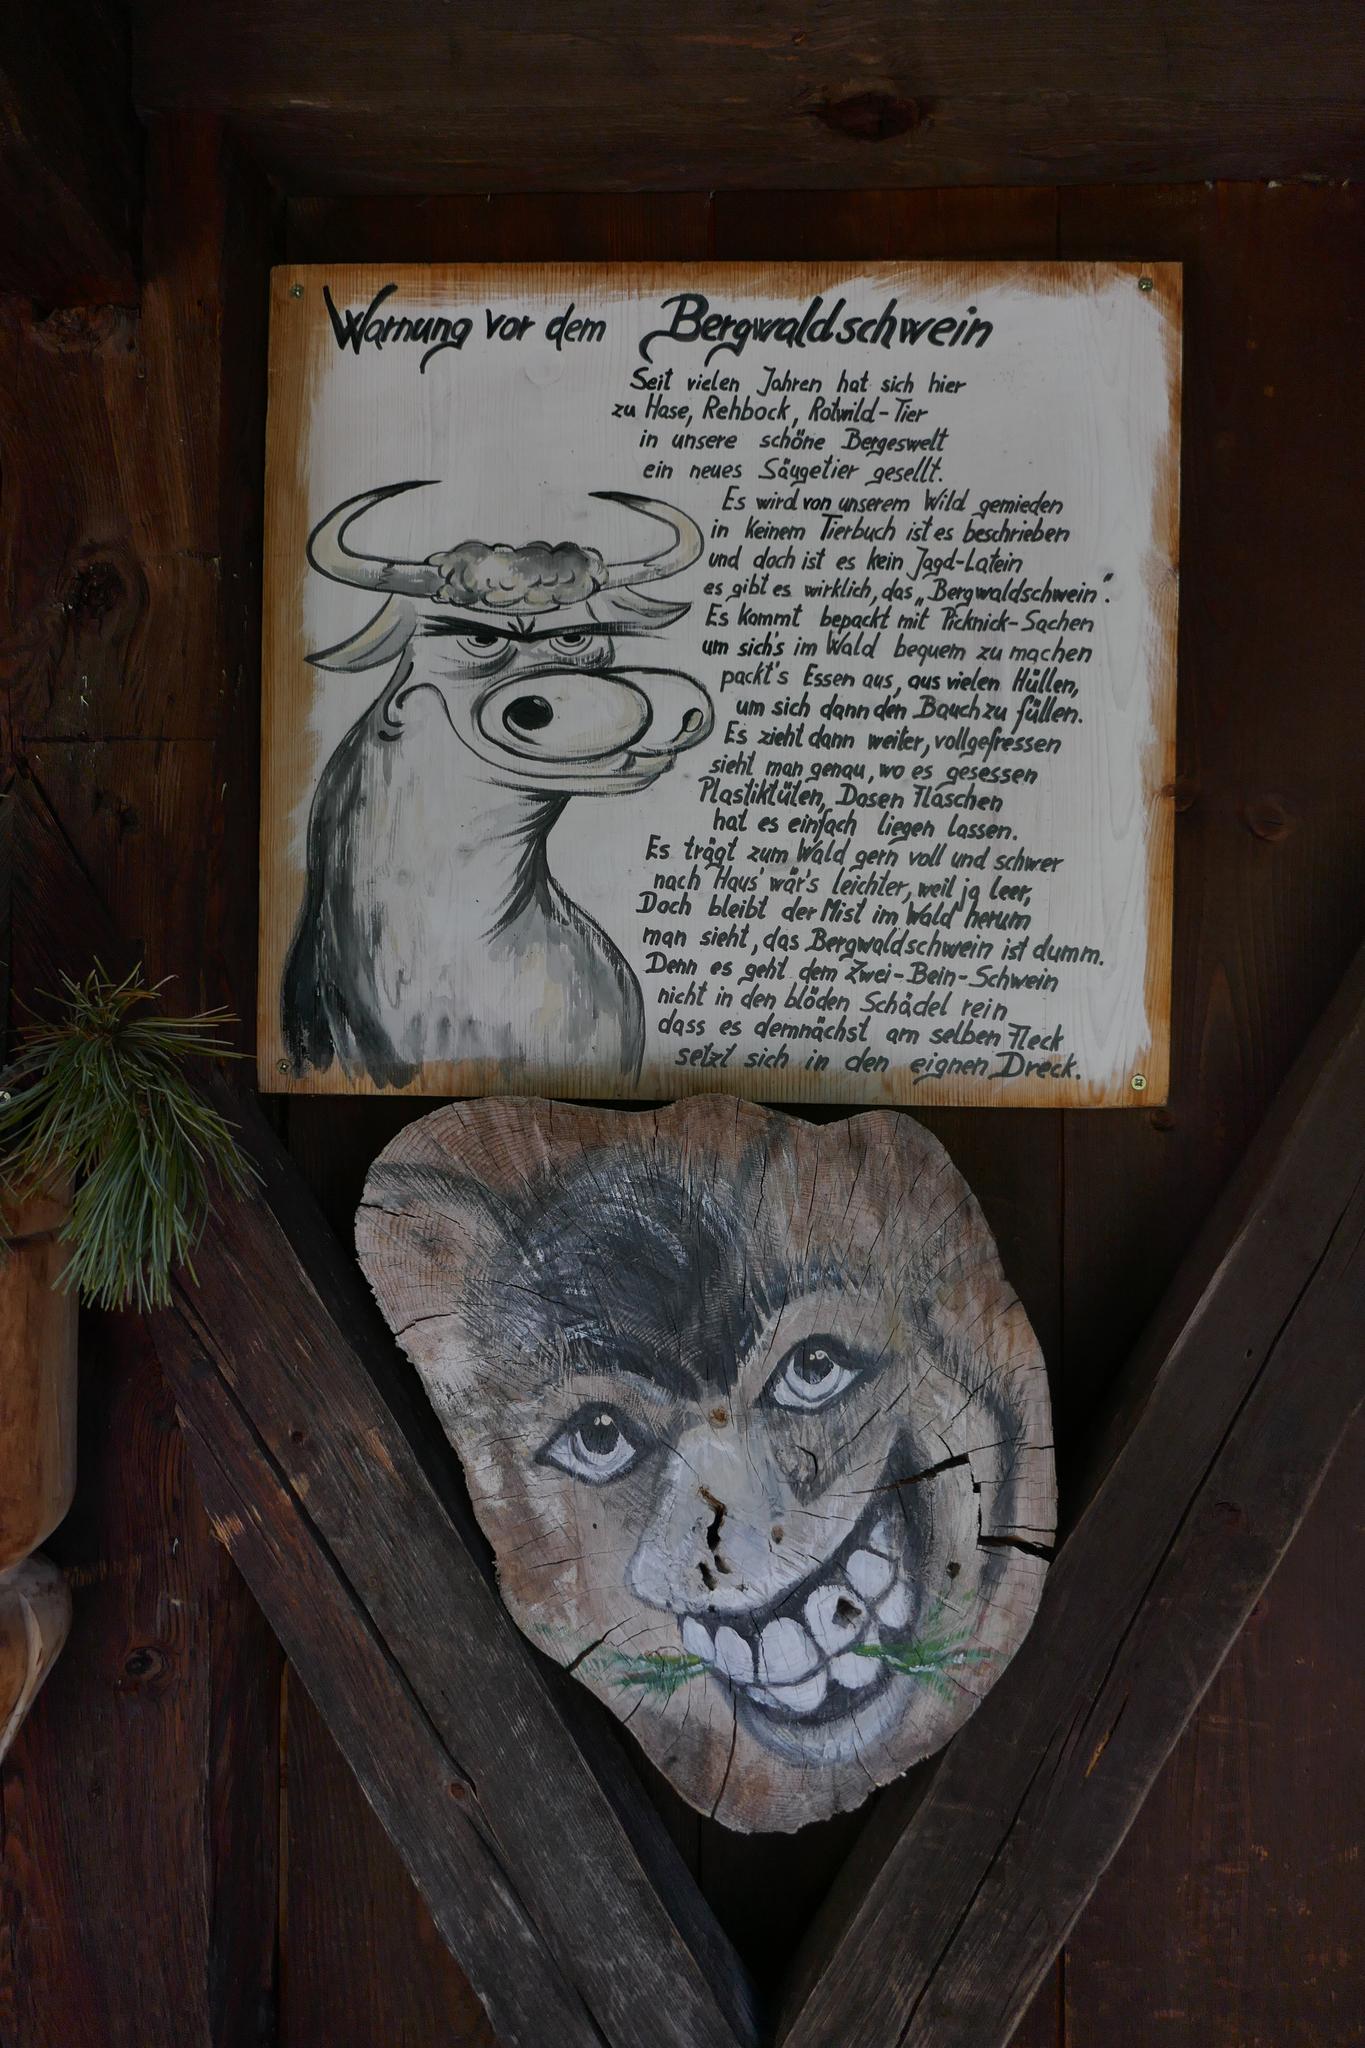 Warnung vor dem Bergwaldschwein
Seit vielen Jahren hat sich hier
zu Hase, Rehbock, Rotwild-Tier
in unsere schöne Bergeswelt
ein neues Säugetier gesellt.
Es wird von unserem Wild gemieden
in keinem Tierbuch ist es beschrieben
und doch ist es kein Jagd-Latein
es gibt es wirklich, das „Bergwaldschwein".
Es kommt bepackt mit Picknick-Sachen
um sich's im Wald bequem zu machen
packt's Essen aus, aus vielen Hüllen,
um sich dann den Bauch zu füllen.
Es zieht dann weiter, vollgefressen
sieht man genau, wo es gesessen
Plastiktüten, Dosen Flaschen
hat es einfach liegen lassen.
Es trägt zum Wald gern voll und schwer
nach Haus' wär's leichter, weil ja leer,
Doch bleibt der Mist im Wald herum
man sieht, das Bergwaldschwein ist dumm.
Denn es geht dem Zwei-Bein-Schwein
nicht in den blöden Schädel rein
dass es demnächst am selben Fleck
setzt sich in den eignen Dreck.